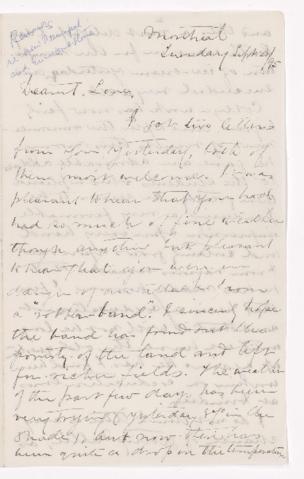 Montreal
Tuesday Sept 24/95
Dearest Love,
I got two letters
from you yesterday, both of
them most welcome. It was
pleasant to hear that you had
had so much fine weather
though anything but pleasant
to hear that you were in
danger of from
a "robber band". I sincerely hope
the band has found out the
poverty of the land and left
for richer fields. The weather
of the past few days has been
very trying (yesterday 88° in the
shade) but now there has
been quite a drop in the temperature